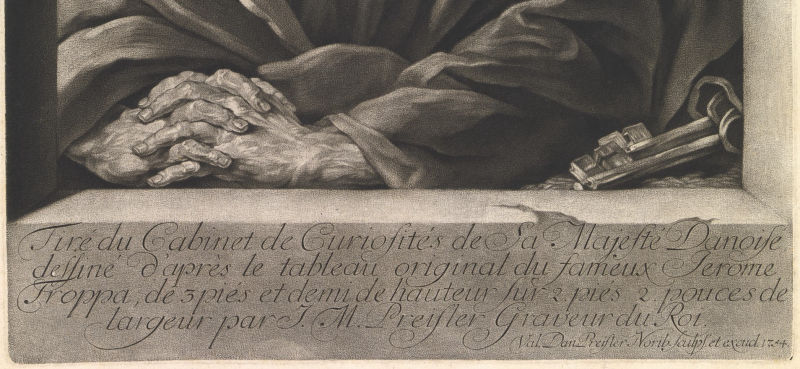 Tiré du Cabinet de Curiosités de Sa Majesté Danoise,
dessiné d'après le tableau original du fameux Jerome
Troppa, de 3 piés et demi de hauteur sur 2. piés 2. pouces de
largeur par J. M. Preisler Graveur du Roi.
Val. Dan. Preisler Norib. sculps. et excud. 1754.